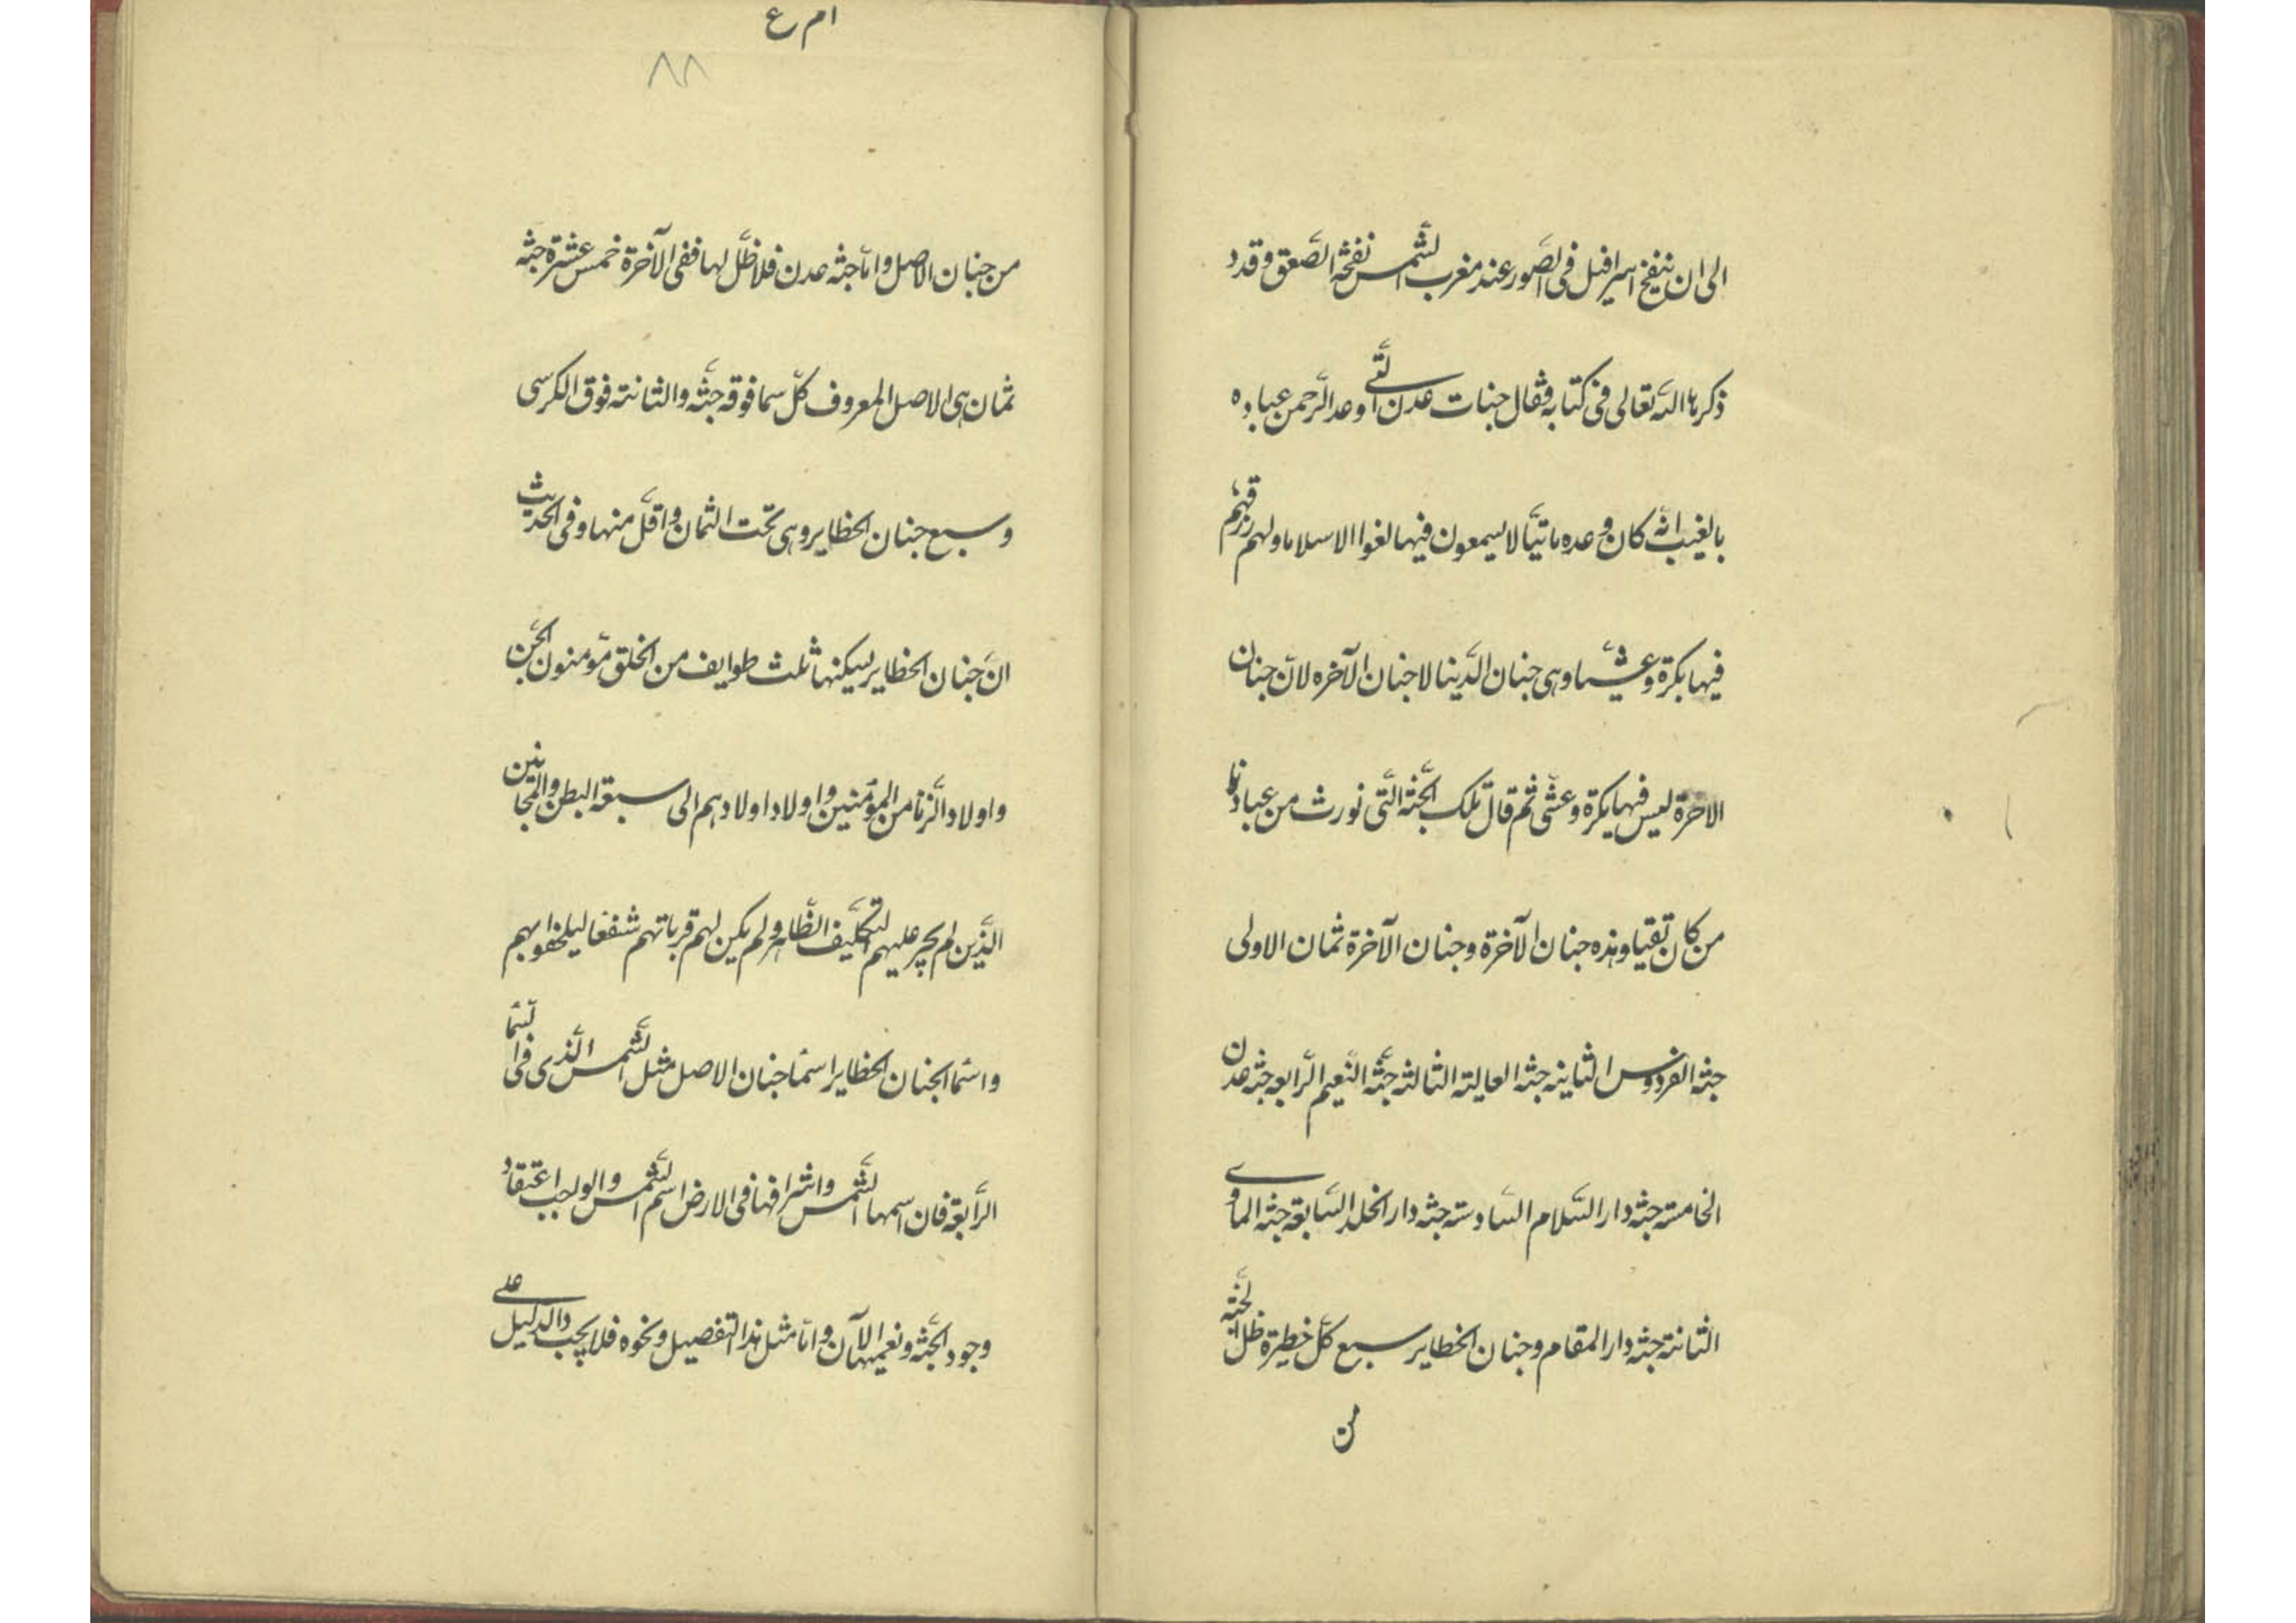 الی ان ینفخ اسرافیل فی الصّور عند مغرب الشّمس نفخة الصّعق وقد د
ذکرها اللّه تعالی فی کتابه فقال جنات عدن الّتی وعد الرّحمن عباده
بالغیب انّه کان وعده ماتیّا لا یسمعون فیها لغوا الا سلاما ولهم رزقهم
فیها بکرة وعشیّا وهی جنان الدّنیا لا جنان الآخره لانّ جنان
الاخرة لیس فیها بکرة وعشیّ ثم قال تلک الجنّة الّتی نورث من عبادنا
من کان تقیا وهذه جنان الآخرة وجنان الآخرة ثمان الاولی
جنّة الفردوس الثانیه جنّة العالیة الثالثه جنّة النّعیم الرّابعه جنّة عدن
الخامسته جنّة دار السّلام السّادسته جنّة دار الخلد السّابعة جنّة الماوی
الثامنة جنّة دار المقام وجنان الخطایر سبع کلّ خطیرة ظلّ لجنّه
من
ام ع
٨٨
من جنان الاصل وامّا جنّة عدن فلا ظلّ لها ففی الآخرة خمس عشرة جنّة
ثمان هی الاصل المعروف کلّ سما فوقه جنّة والثامنة فوق الکرسی
وسبع جنان الخطایر وهی تحت الثمان واقلّ منها وفی الحدیث
انّ جنان الخطایر یسکنها ثلث طوایف من الخلق مؤمنون الجنّ
واولاد الزّنا من المؤمنین واولاد اولادهم الی سبعة البطن والمجانین
الّذین لم یجر علیهم التکلیف الظّاهر ولم یکن لهم قرباتهم شفعا لیلحقوا بهم
واسما الجنان الخطایر اسما جنان الاصل مثل الشّمس الّذی فی السّما
الرّابعة فان اسمها الشّمس واشراقها فی الارض اسم الشّمس والواجب اعتقاد
وجود الجنّة ونعیمها الآن وامّا مثل هذا التفصیل ونحوه فلا یجب والدّلیل علی